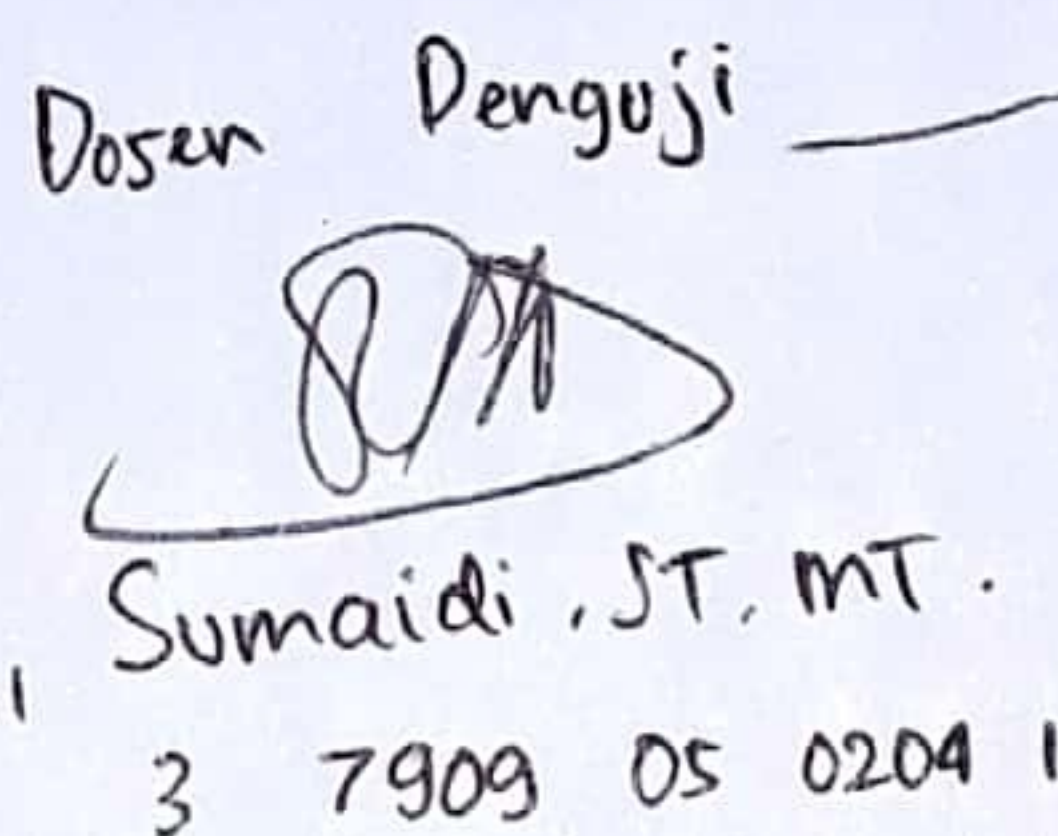 Dosen Denguji
Sumaidi, ST, MT.
3 7909 05 0204 1